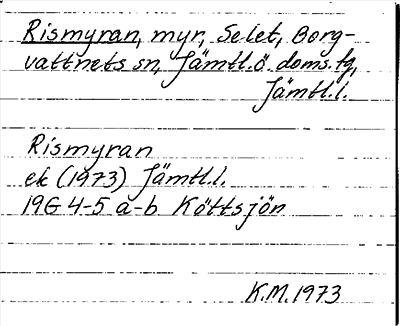 Rismyran, myr, Selet, Borg-
vattnets sn, Jämtl.ö. doms.tg,
Jämtl.l.
Rismyran
ek (1973) Jämtl.l.
19G 4-5 a-b Köttsjön
K.M. 1973